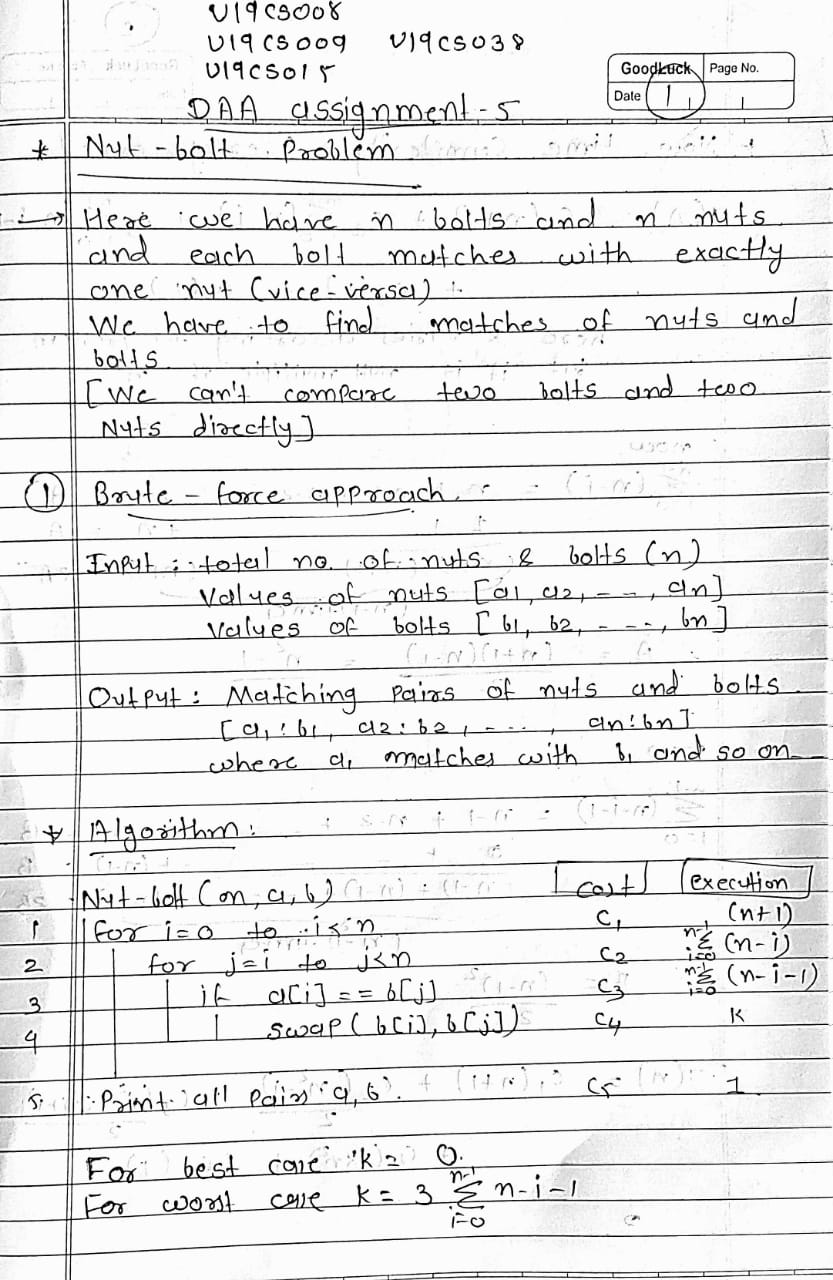 U19CS008
U19CS009 U19CS038
U19CS015
GoodLuck Page No.
Date 1 1
DAA assignment-5
* Nut-bolt Problem
→ Here we have n bolts and n nuts
and each bolt matches with exactly
one nut (vice-versa)
We have to find matches of nuts and
bolts.
[We can't compare two bolts and two
Nuts directly]
① Brute-force approach.
Input : total no. of nuts & bolts (n)
Values of nuts [a1, a2, - - -, an]
Values of bolts [b1, b2, - - - -, bn]
Output : Matching Pairs of nuts and bolts
[a1:b1, a2:b2, - - - -, an:bn]
where a1 matches with b1 and so on.
* Algorithm:
Nut-bolt (n, a, b) cost execution
1 for i=0 to i<n C1 (n+1)
2 for j=i to j<n C2 n-1Σi=0 (n-i)
3 if a[i] == b[j] C3 n-1Σi=0 (n-i-1)
4 swap(b[i], b[j]) C4 K
5. Print all pairs a, b. C5 1
For best case k = 0.
For worst case k = 3 n-1Σi=0 n-i-1